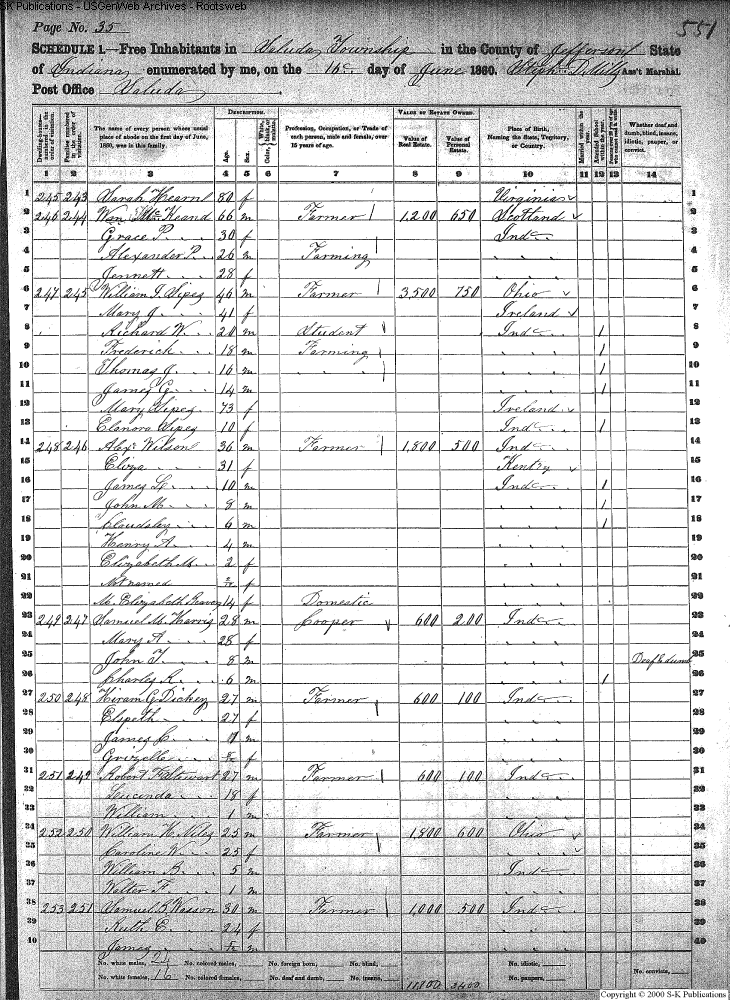 SK Publications - USGenWeb Archives - Rootsweb
Page No. 35
551
SCHEDULE 1.—Free Inhabitants in Saluda Township in the County of Jefferson State
of Indiana enumerated by me, on the 16th day of June 1860. Ass't Marshal.
Post Office Saluda
DESCRIPTION. VALUE OF ESTATE OWNED.
Dwelling-houses—numbered in the order of visitation.
Families numbered in the order of visitation.
The name of every person whose usual place of abode on the first day of June, 1860, was in this family.
Age. Sex. Color, White, black, or mulatto.
Profession, Occupation, or Trade of each person, male and female, over 15 years of age.
Value of Real Estate. Value of Personal Estate.
Place of Birth, Naming the State, Territory, or Country.
Married within the year. Attended School within the year.
Whether deaf and dumb, blind, insane, idiotic, pauper, or convict.
1 2 3 4 5 6 7 8 9 10 11 12 13 14
1 245 243 Sarah Hearn 80 f Virginia 1
2 246 244 Wm. McKeand 66 m Farmer 1,200 650 Scotland 2
3 Grace P. 30 f Inda 3
4 Alexander P. 26 m Farming 4
5 Jennett 28 f 5
6 247 245 William J. Sipes 46 m Farmer 3,500 750 Ohio 6
7 Mary J. 41 f Ireland 7
8 Richard W. 20 m Student Inda 1 8
9 Frederick 18 m Farming 1 9
10 Thomas J. 16 m 1 10
11 James G. 14 m 1 11
12 Mary Sipes 73 f Ireland 12
13 Elanora Sipes 10 f Inda 1 13
14 248 246 Alex. Wilson 36 m Farmer 1,800 500 Inda 14
15 Eliza 31 f Kentry 15
16 James L. 10 m Inda 1 16
17 John M. 8 m 1 17
18 Cloudsley 6 m 1 18
19 Henry A. 4 m 19
20 Elizabeth M. 2 f 20
21 Not named f 21
22 M. Elizabeth 14 f Domestic 22
23 249 247 Samuel M. Harris 28 m Cooper 600 200 Inda 23
24 Mary A. 28 f 24
25 John T. 8 m Deaf & dumb 25
26 Charles R. 6 m 1 26
27 250 248 Hiram G. Dickey 27 m Farmer 600 100 Inda 27
28 Elspeth 27 f 28
29 James C. m 29
30 Grizelle f 30
31 251 249 Robert Stewart 27 m Farmer 600 100 Inda 31
32 Lucinda 18 f 32
33 William 1 m 33
34 252 250 William H. Miles 25 m Farmer 1,800 600 Ohio 34
35 Caroline W. 25 f 35
36 William B. 5 m Inda 36
37 Walter F. 1 m 37
38 253 251 Samuel S. Wasson 30 m Farmer 1,000 500 Inda 38
39 Ruth E. 24 f 39
40 James m 40
No. white males, 24 No. colored males, No. foreign born, No. blind, No. idiotic, No. convicts,
No. white females, 16 No. colored females, No. deaf and dumb, No. insane, No. paupers,
11800 3400
Copyright © 2000 S-K Publications